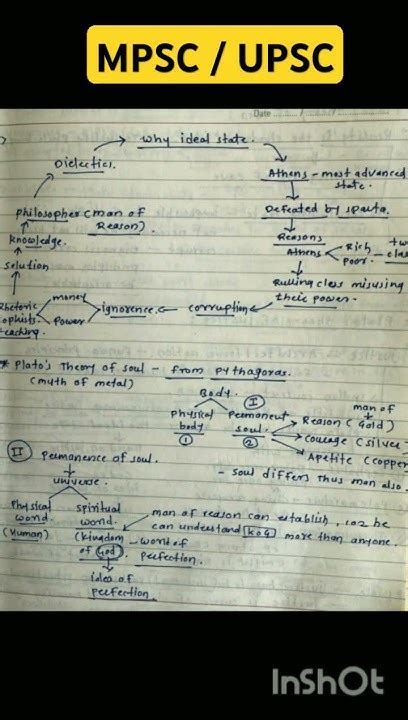 MPSC / UPSC
Date ......... / .........
why ideal state.
Dielectics.
Athens - most advanced
state.
Philosopher (man of
Reason)
Defeated by Sparta.
Knowledge.
Reasons
Athens Rich
Poor
solution
Rulling class misusing
their power.
money
Power
ignorence. corruption
* Plato's Theory of soul - from pythagoras.
(myth of metal)
Body.
I
Physical body 1
Permonent soul. 2
man of
Reason (Gold)
Courage (silver
Apetite (copper
- Soul differs thus man also.
II Permanence of soul.
universe.
Physical world. (Human)
spiritual world. (Kingdom of God)
man of reason can establish, coz he
can understand KOG more than anyone.
- world of
perfection.
idea of
perfection.
InShOt